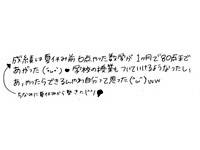 成績は夏休み前6点やった数学が1ヶ月で80点まで
あがった(´`ω´`)●学校の授業もついていけるようなったし、
あ、やったらできるんやわ自分って思った(°ω°)ww
ちなみに夏休みから塾きた(°°)